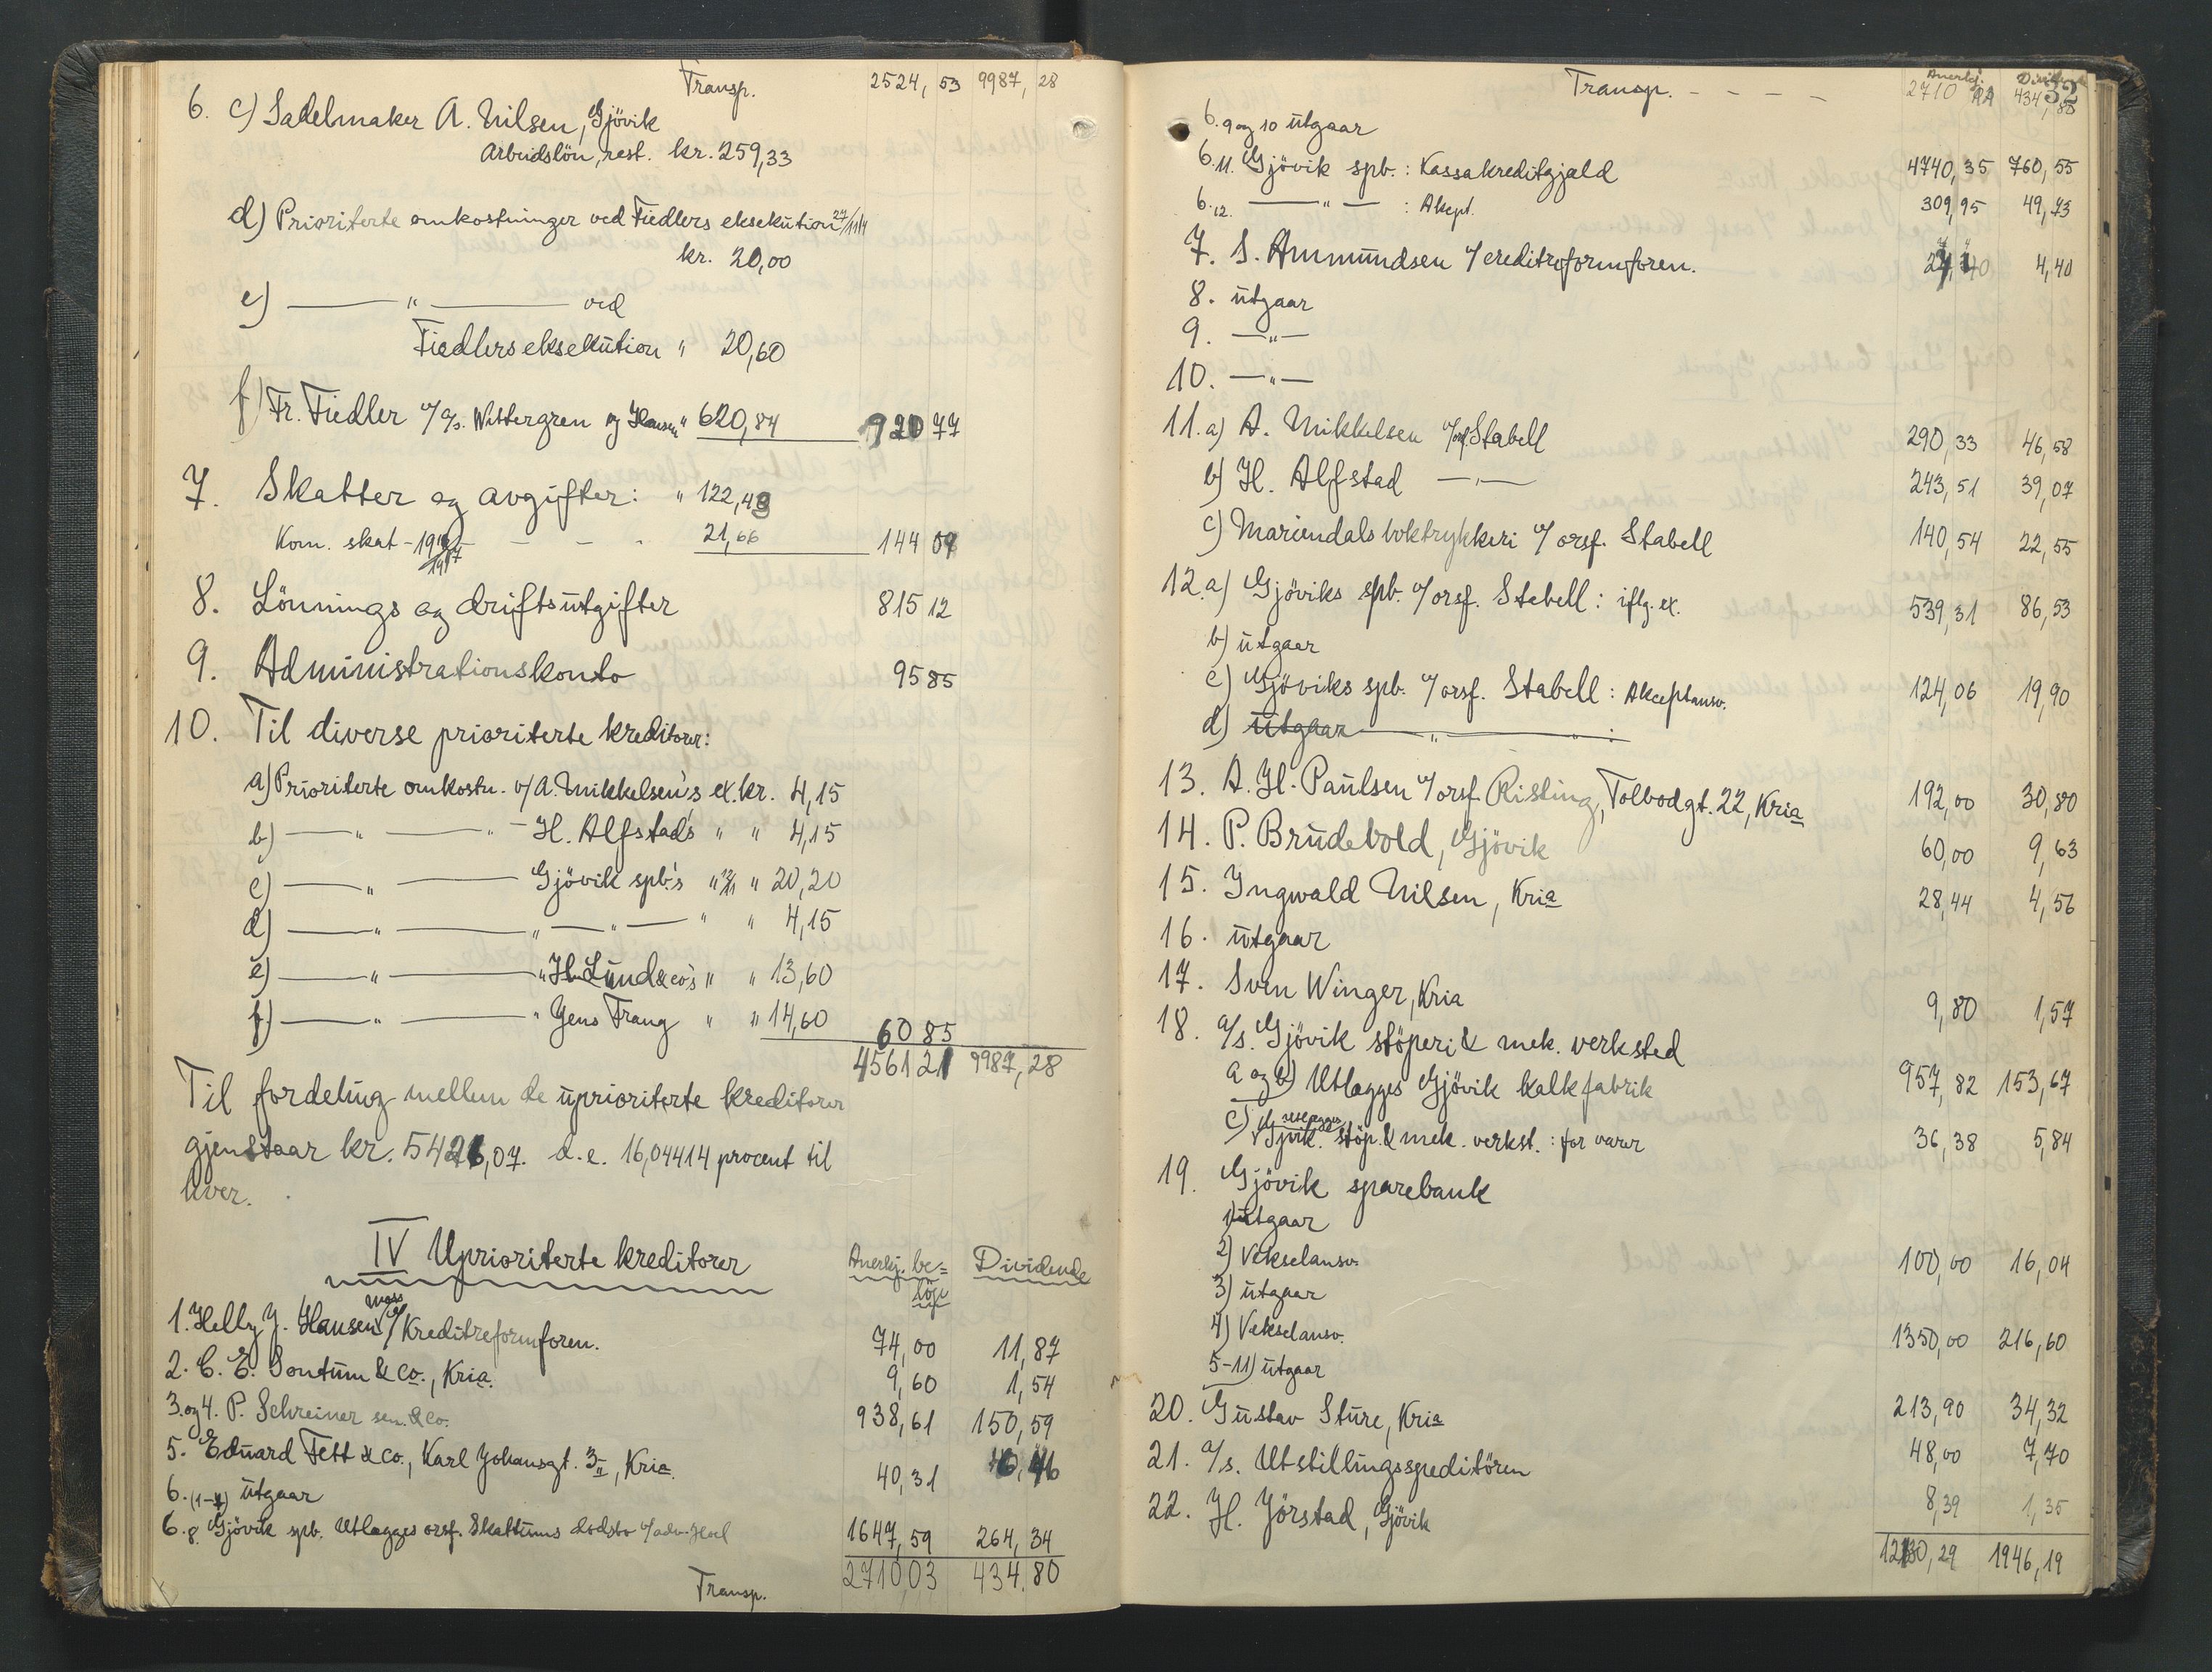 Transp. 2524,53 9987,28
6. c) Sadelmaker A. Nilsen, Gjövik
Arbeidslön, rest. kr. 259,33
d) Prioriterte omkostninger ved Fiedlers eksekution 27/11 14
kr. 20,00
e) — " — ved
Fiedlers eksekution " 20,60
f) Fr. Fiedler v/ a/s. Wittergren og Hansen " 620,84 920 77
7. Skatter og avgifter: " 122,43
Kom. skat - - - - 21,66 144 09
8. Lönnings og driftsutgifter 815 12
9. Administrationskonto 95 85
10. Til diverse prioriterte kreditorer:
a) Prioriterte omkostn. v/ A. Mikkelsen's ex. kr. 4,15
b) — " — " — H. Alfstad's " " 4,15
c) — " — Gjövik spb.'s " " 20,20
d) — " — " — " — " " 4,15
e) — " — " H. Lund & co's " " 13,60
f) — " — " Jens Frang " " 14,60 60 85
4561 21 9987,28
Til fordeling mellem de uprioriterte kreditorer
gjenstaar kr. 5426,07. d.e. 16,04414 procent til
hver.
IV Uprioriterte kreditorer Anerkj. be= Dividende
löp
1. Helly J. Hansen, Moss v/ Kreditreformforen. 74,00 11,87
2. C. E. Sontum & Co., Kria. 9,60 1,54
3. og 4. P. Schreiner sen. & Co. 938,61 150,59
5. Eduard Fett & Co., Karl Johansgt. 3 II, Kria. 40,31 6,46
6. (1-7) utgaar
6. 8. Gjövik spb. Utlægges orsf. Skattums dödsbo v/ adv. Hoel 1647,59 264,34
Transp. 2710,03 434,80
32
Transp. - - - - Anerkj. 2710 Divid. 434,80
6. 9 og 10 utgaar
6. 11. Gjövik spb.: Kassakreditgjæld 4740,35 760,55
6. 12. — " — : Aksept. 309,95 49,73
7. S. Ammundsen v/ creditreformforen. 4,40
8. utgaar
9. — " —
10. — " —
11. a) A. Mikkelsen v/ orsf. Stabell 290,33 46,58
b) H. Alfstad — " — 243,51 39,07
c) Mariendals boktrykkeri v/ orsf. Stabell 140,54 22,55
12. a) Gjöviks spb. v/ orsf. Stabell: iflg. ex. 539,31 86,53
b) utgaar
c) Gjöviks spb. v/ orsf. Stabell: Akceptansv. 124,06 19,90
d) utgaar — " — " — :
13. A. H. Paulsen v/ orsf. Risting, Tolbodgt. 22, Kria 192,00 30,80
14. P. Brudevold, Gjövik 60,00 9,63
15. Ingwald Nilsen, Kria 28,44 4,56
16. utgaar
17. Sven Winger, Kria 9,80 1,57
18. a/s. Gjövik stöperi & mek. verksted
a og b) Utlægges Gjövik kalkfabrik 957,82 153,67
c) utlægges Gjövik. stöp. & mek. verkst.: for varer 36,38 5,84
19. Gjövik sparebank
1) utgaar
2) Vekselansv. 100,00 16,04
3) utgaar
4) Vekselansv. 1350,00 216,60
5-11) utgaar
20. Gustav Sture, Kria 213,90 34,32
21. a/s. Utstillingsspeditören 48,00 7,70
22. H. Jörstad, Gjövik 8,39 1,35
12130,29 1946,19